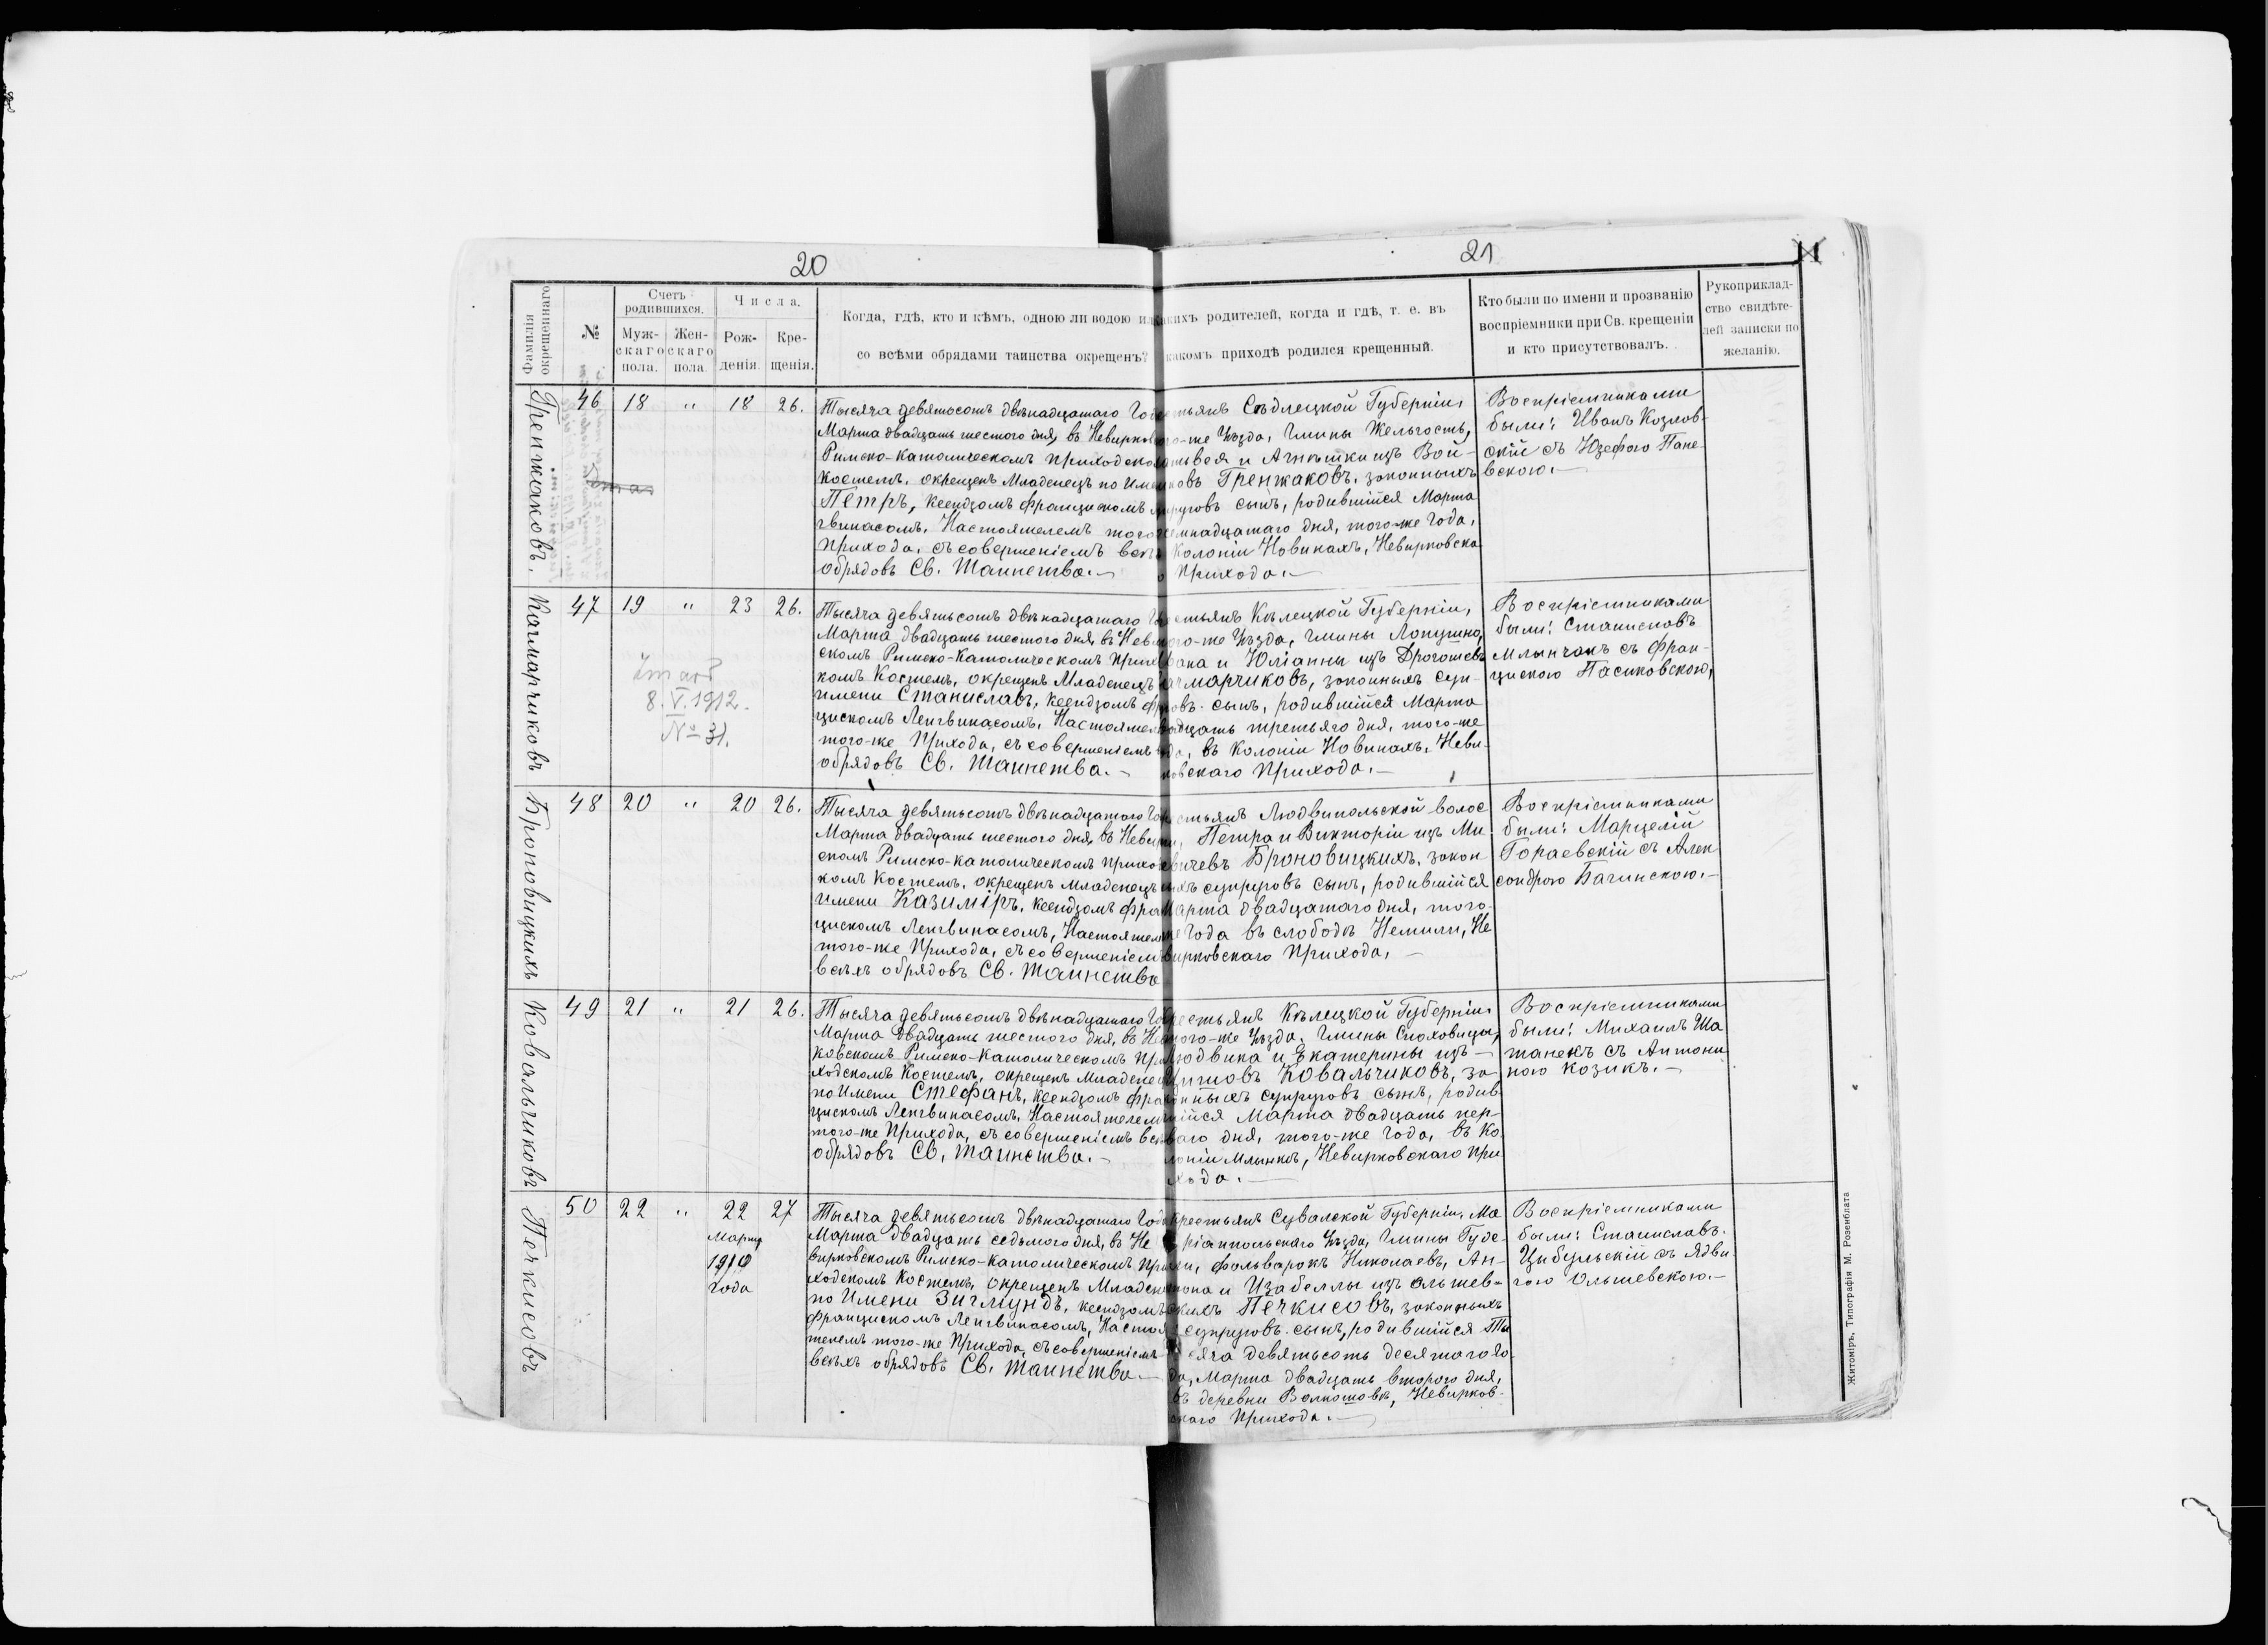 20
21
11
Фамилія окрещеннаго
№
Счетъ родившихся.
Муж-
скаго
пола.
Жен-
скаго
пола.
Числа.
Рож-
денія.
Кре-
щенія.
Когда, гдѣ, кто и кѣмъ, одною ли водою или
со всѣми обрядами таинства окрещенъ?
какихъ родителей, когда и гдѣ, т. е. въ
какомъ приходѣ родился крещенный.
Кто были по имени и прозванію
воспріемники при Св. крещеніи
и кто присутствовалъ.
Рукоприклад-
ство свидѣте-
лей записки по
желанію.
Гренжаковъ.
46 18 " 18 26.
Тысяча девятьсотъ двѣнадцатаго Го
Марта двадцать шестого дня, въ Невирко
Римско-Католическомъ приходско
Костелѣ, окрещенъ Младенецъ по Име
Петръ, Ксендзомъ Францискомъ
гвинасомъ, Настоятелемъ того
Прихода, съ совершеніемъ всѣ
обрядовъ Св. Таинства.—
стьянъ Сѣдлецкой Губерніи,
го-же Уѣзда, Гмины Желгость,
твея и Агнѣшки изъ Вой-
ковъ Гренжаковъ, законныхъ
пруговъ сынъ, родившійся Марта
емнадцатаго дня, того-же Года,
Колоніи Новинахъ, Невирковска
о Прихода.—
Воспріемниками
были: Иванъ Козлов-
скій съ Юзефою Пане-
вскою.—
Качмарчиковъ
47 19 " 23 26.
Zmarł
8.V.1912.
№ 31.
Тысяча девятьсотъ двѣнадцатаго Го
Марта двадцать шестого дня, въ Неви
скомъ Римско-Католическомъ Прихо
комъ Костелѣ, окрещенъ Младенецъ
имени Станиславъ, Ксендзомъ Фр
цискомъ Ленгвинасомъ, Настояте
того-же Прихода, съ совершеніемъ
обрядовъ Св. Таинства.—
естьянъ Кѣлецкой Губерніи,
ого-же Уѣзда, Гмины Лопушно,
фана и Юліанны изъ Дрогошевъ
ачмарчиковъ, законныхъ суп-
говъ сынъ, родившійся Марта
адцать третьяго дня, того-же
да, въ Колоніи Новинахъ, Неви-
ковскаго Прихода.—
Воспріемниками
были: Станиславъ
Млынчакъ съ Фран-
цискою Пасиковскою,
Броновицкихъ
48 20 " 20 26.
Тысяча девятьсотъ двѣнадцатаго Го
Марта двадцать шестого дня, въ Невир
скомъ Римско-католическомъ прихо
комъ Костелѣ, окрещенъ Младенецъ
имени Казиміръ, Ксендзомъ Фра
цискомъ Ленгвинасомъ, Настояте
того-же Прихода, съ совершеніем
всѣхъ обрядовъ Св. Таинства
стьянъ Людвипольской волос
и, Петра и Викторіи изъ Ми
евичевъ Броновицкихъ, закон
ыхъ супруговъ сынъ, родившійся
Марта двадцатаго дня, того-
же Года въ слободѣ Немили, Не
вирковскаго Прихода,—
Воспріемниками
были: Марцелій
Гораевскій съ Алек
сандрою Багинскою.—
Ковальчиковъ
49 21 " 21 26.
Тысяча девятьсотъ двѣнадцатаго Го
Марта двадцать шестого дня, въ Не
ковскомъ Римско-Католическомъ При
ходскомъ Костелѣ, окрещенъ Младене
по Имени Стефанъ, Ксендзомъ Фра
цискомъ Ленгвинасомъ, Настоятелем
того-же Прихода, съ совершеніемъ всѣ
обрядовъ Св. Таинства.—
рестьянъ Кѣлецкой Губерніи
того-же Уѣзда, Гмины Снохвицы,
юдвика и Екатерины изъ—
Ковальчиковъ, за-
онныхъ супруговъ сынъ, родив
шійся Марта двадцать пер-
ваго дня, того-же Года, въ Ко
лоніи Млынкѣ, Невирковскаго При
хода.—
Воспріемниками
были: Михаилъ Ша
танекъ съ Антони
ною Козикъ.—
Печкисовъ
50 22 " 22 27
Марта
1910
Года
Тысяча девятьсотъ двѣнадцатаго Года
Марта двадцать седьмого дня, въ Не
вирковскомъ Римско-Католическомъ При
ходскомъ Костелѣ, окрещенъ Младене
по Имени Зигмундъ, Ксендзомъ
Францискомъ Ленгвинасомъ, Настоя
телемъ того-же Прихода, съ совершеніемъ
всѣхъ обрядовъ Св. Таинства.—
Крестьянъ Сувалской Губерніи, Ма
ріапольскаго Уѣзда, Гмины Гуде-
ли, Фольварокъ Николаевъ, Ан-
тона и Изабеллы изъ Ольшев-
скихъ Печкисовъ, законныхъ
супруговъ сынъ, родившійся Ты
сяча девятьсотъ десятаго Го
да, Марта двадцать второго дня,
въ деревни Волкошовѣ, Невирков-
скаго Прихода.—
Воспріемниками
были: Станиславъ
Цибульскій съ Ядви-
гою Ольшевскою.—
Житоміръ, Типографія М. Розенблата